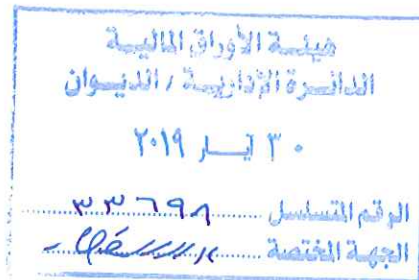 هيئة الأوراق المالية
الدائرة الإدارية / الديوان
٣٠ أيار ٢٠١٩
الرقم المتسلسل ٣٣٦٩٨
الجهة المختصة